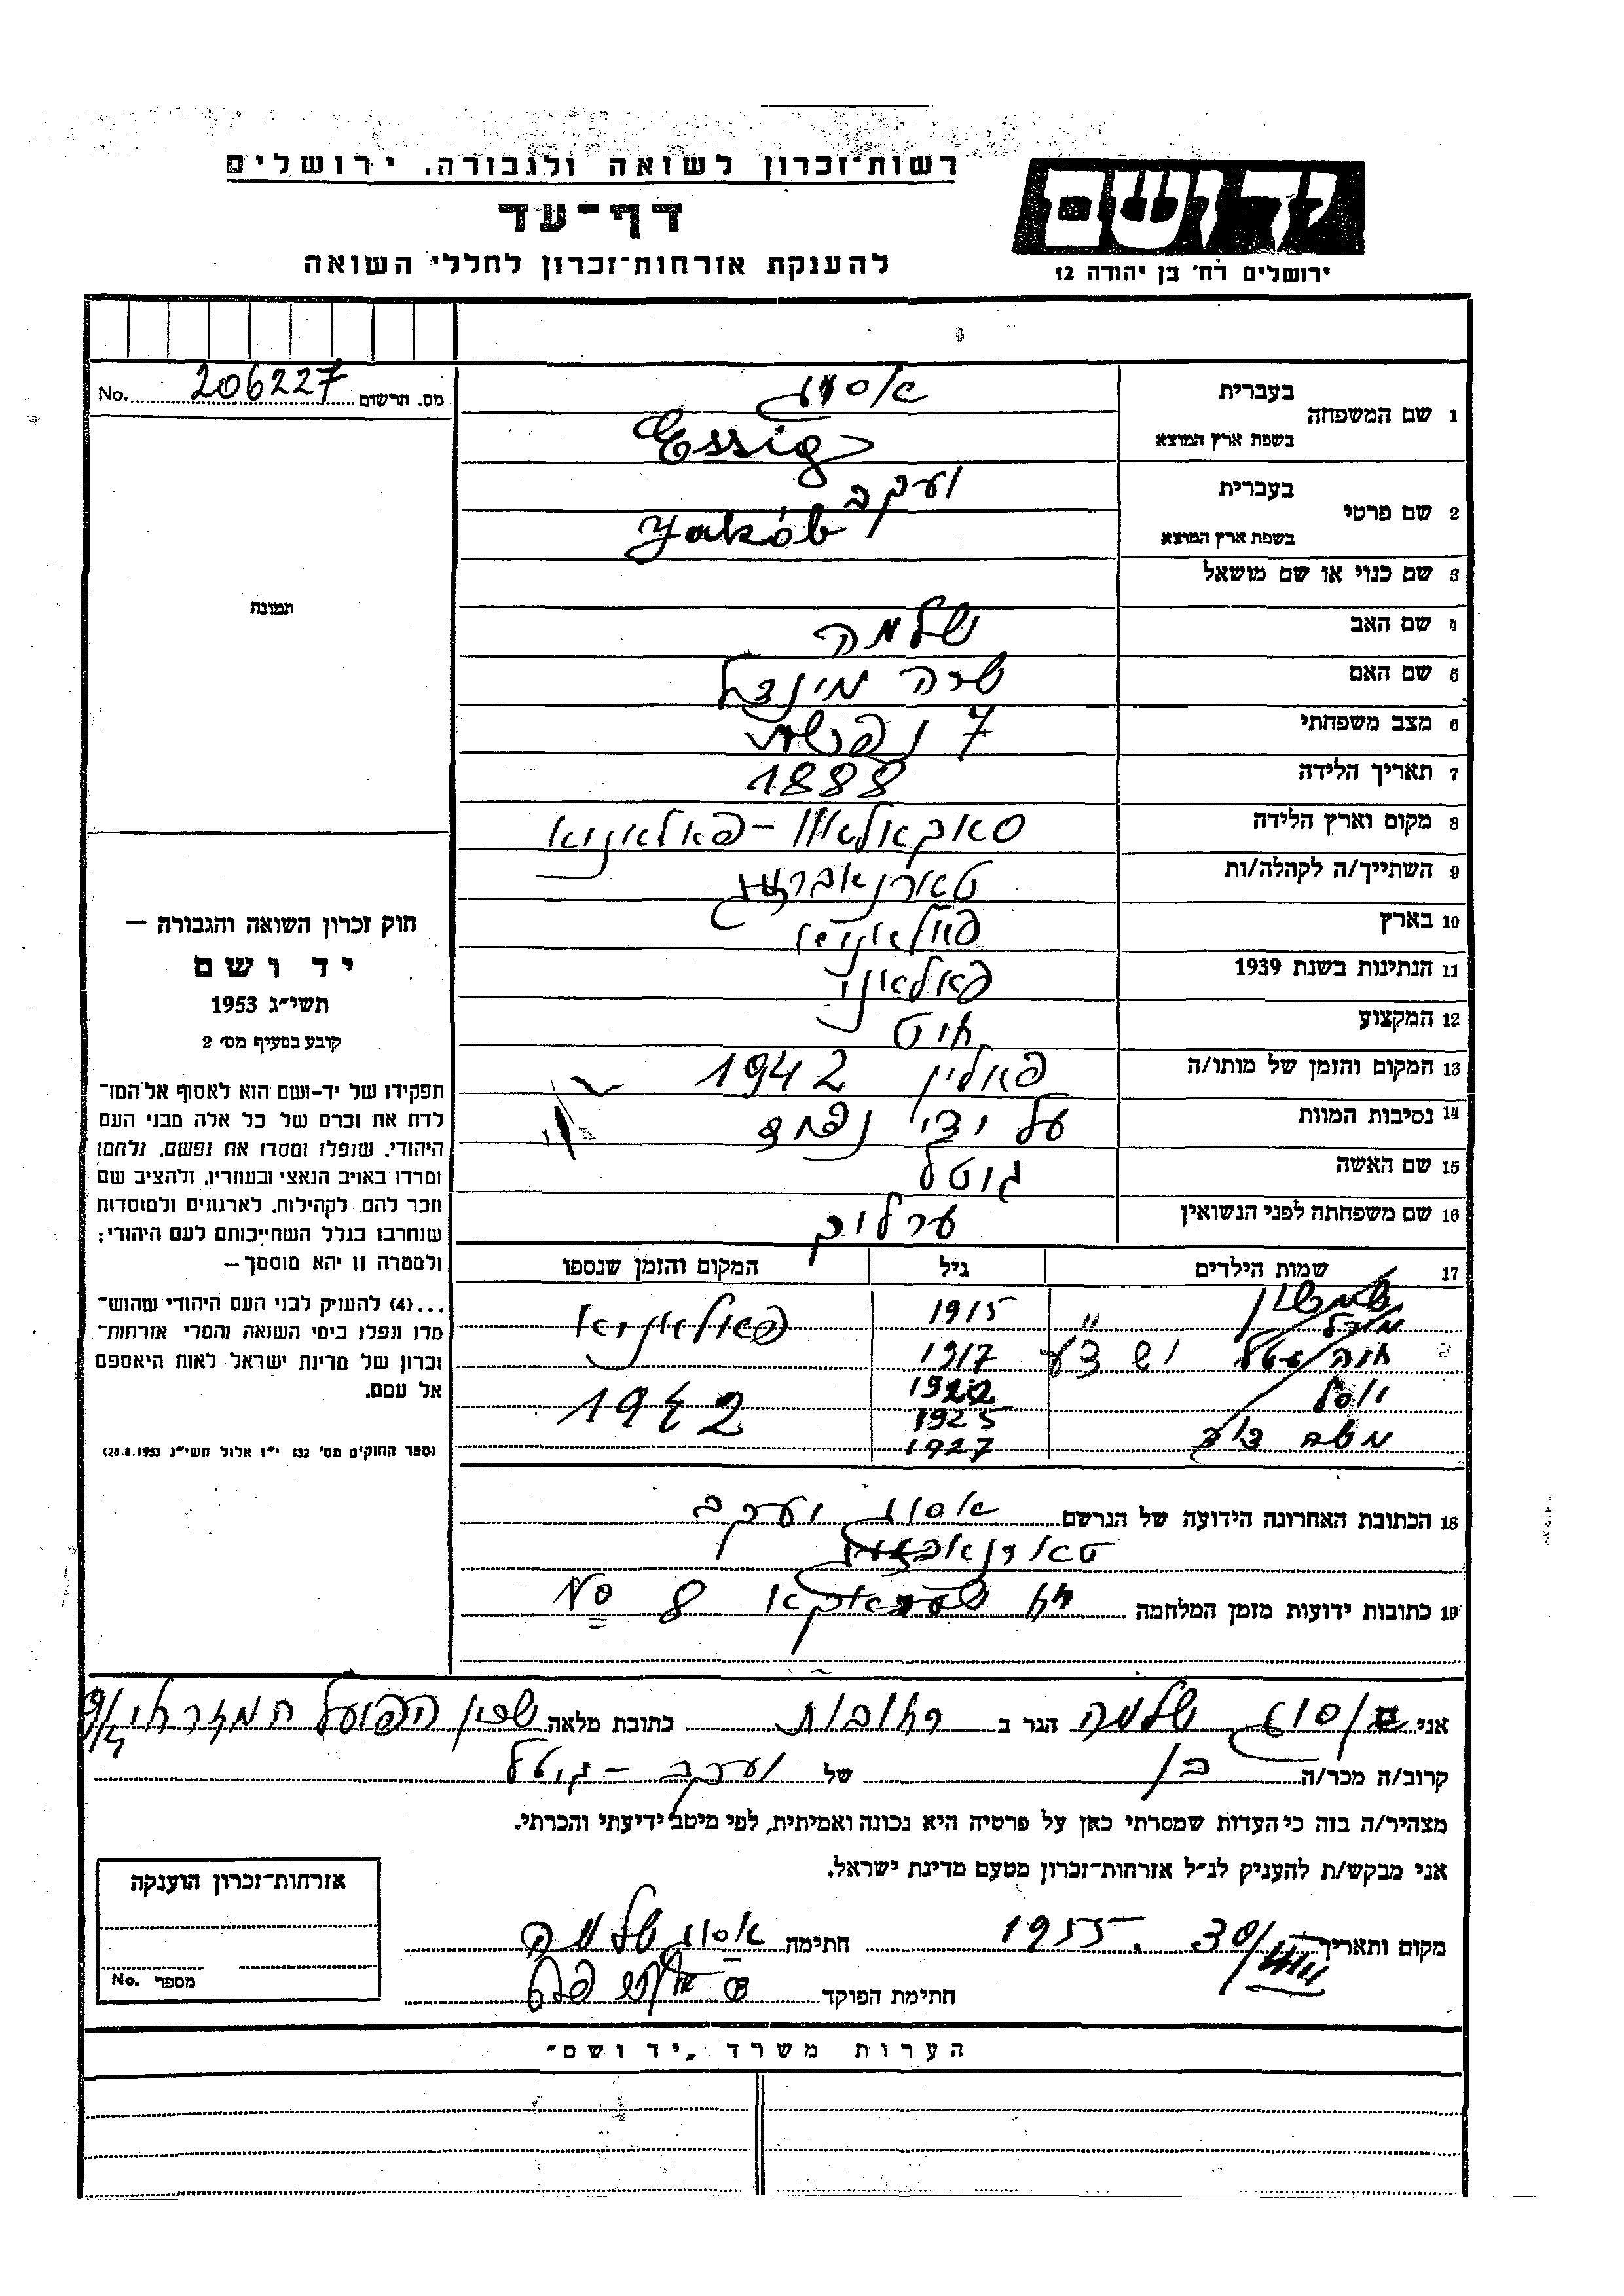 רשות-זכרון לשואה ולגבורה, ירושלים
דף-עד
להענקת אזרחות-זכרון לחללי השואה
יד ושם
ירושלים רח' בן יהודה 12
מס. הרשום 206227 No.
1 שם המשפחה
בעברית
בשפת ארץ המוצא Essig
2 שם פרטי
בעברית יעקב
בשפת ארץ המוצא Yakób
3 שם כנוי או שם מושאל
4 שם האב שלמה
5 שם האם שרה מינדל
6 מצב משפחתי 7 נפשות
7 תאריך הלידה 1888
8 מקום וארץ הלידה
9 השתייך/ה לקהלה/ות
10 בארץ פולאניא
11 הנתינות בשנת 1939 פאלאני
12 המקצוע
13 המקום והזמן של מותו/ה פאלין 1942
14 נסיבות המוות על ידי
15 שם האשה גוטל
16 שם משפחתה לפני הנשואין
17 שמות הילדים גיל המקום והזמן שנספו
1915 פאלאניא
1917
1922 1942
1925
1927
18 הכתובת האחרונה הידועה של הנרשם אסיג יעקב
19 כתובות ידועות מזמן המלחמה 8 No
תמונה
חוק זכרון השואה והגבורה —
יד ושם
תשי״ג 1953
קובע בסעיף מס' 2
תפקידו של יד-ושם הוא לאסוף אל המו-
לדת את זכרם של כל אלה מבני העם
היהודי, שנפלו ומסרו את נפשם, נלחמו
ומרדו באויב הנאצי ובעוזריו, ולהציב שם
וזכר להם, לקהילות, לארגונים ולמוסדות
שנחרבו בגלל השתייכותם לעם היהודי;
ולמטרה זו יהא מוסמך —
...(4) להעניק לבני העם היהודי שהוש-
מדו ונפלו בימי השואה והמרי אזרחות-
זכרון של מדינת ישראל לאות היאספם
אל עמם.
(ספר החוקים מס' 132 י״ז אלול תשי״ג 28.8.1953)
אני אסיג שלמה הגר ב רחובות כתובת מלאה שכון הפועל המזרחי
קרוב/ה מכר/ה בן של יעקב - גוטל
מצהיר/ה בזה כי העדות שמסרתי כאן על פרטיה היא נכונה ואמיתית, לפי מיטב ידיעתי והכרתי.
אני מבקש/ת להעניק לנ״ל אזרחות-זכרון מטעם מדינת ישראל.
מקום ותאריך 30/VIII. 1955 חתימה אסיג שלמה
חתימת הפוקד
אזרחות-זכרון הוענקה
מספר No.
הערות משרד „יד ושם״